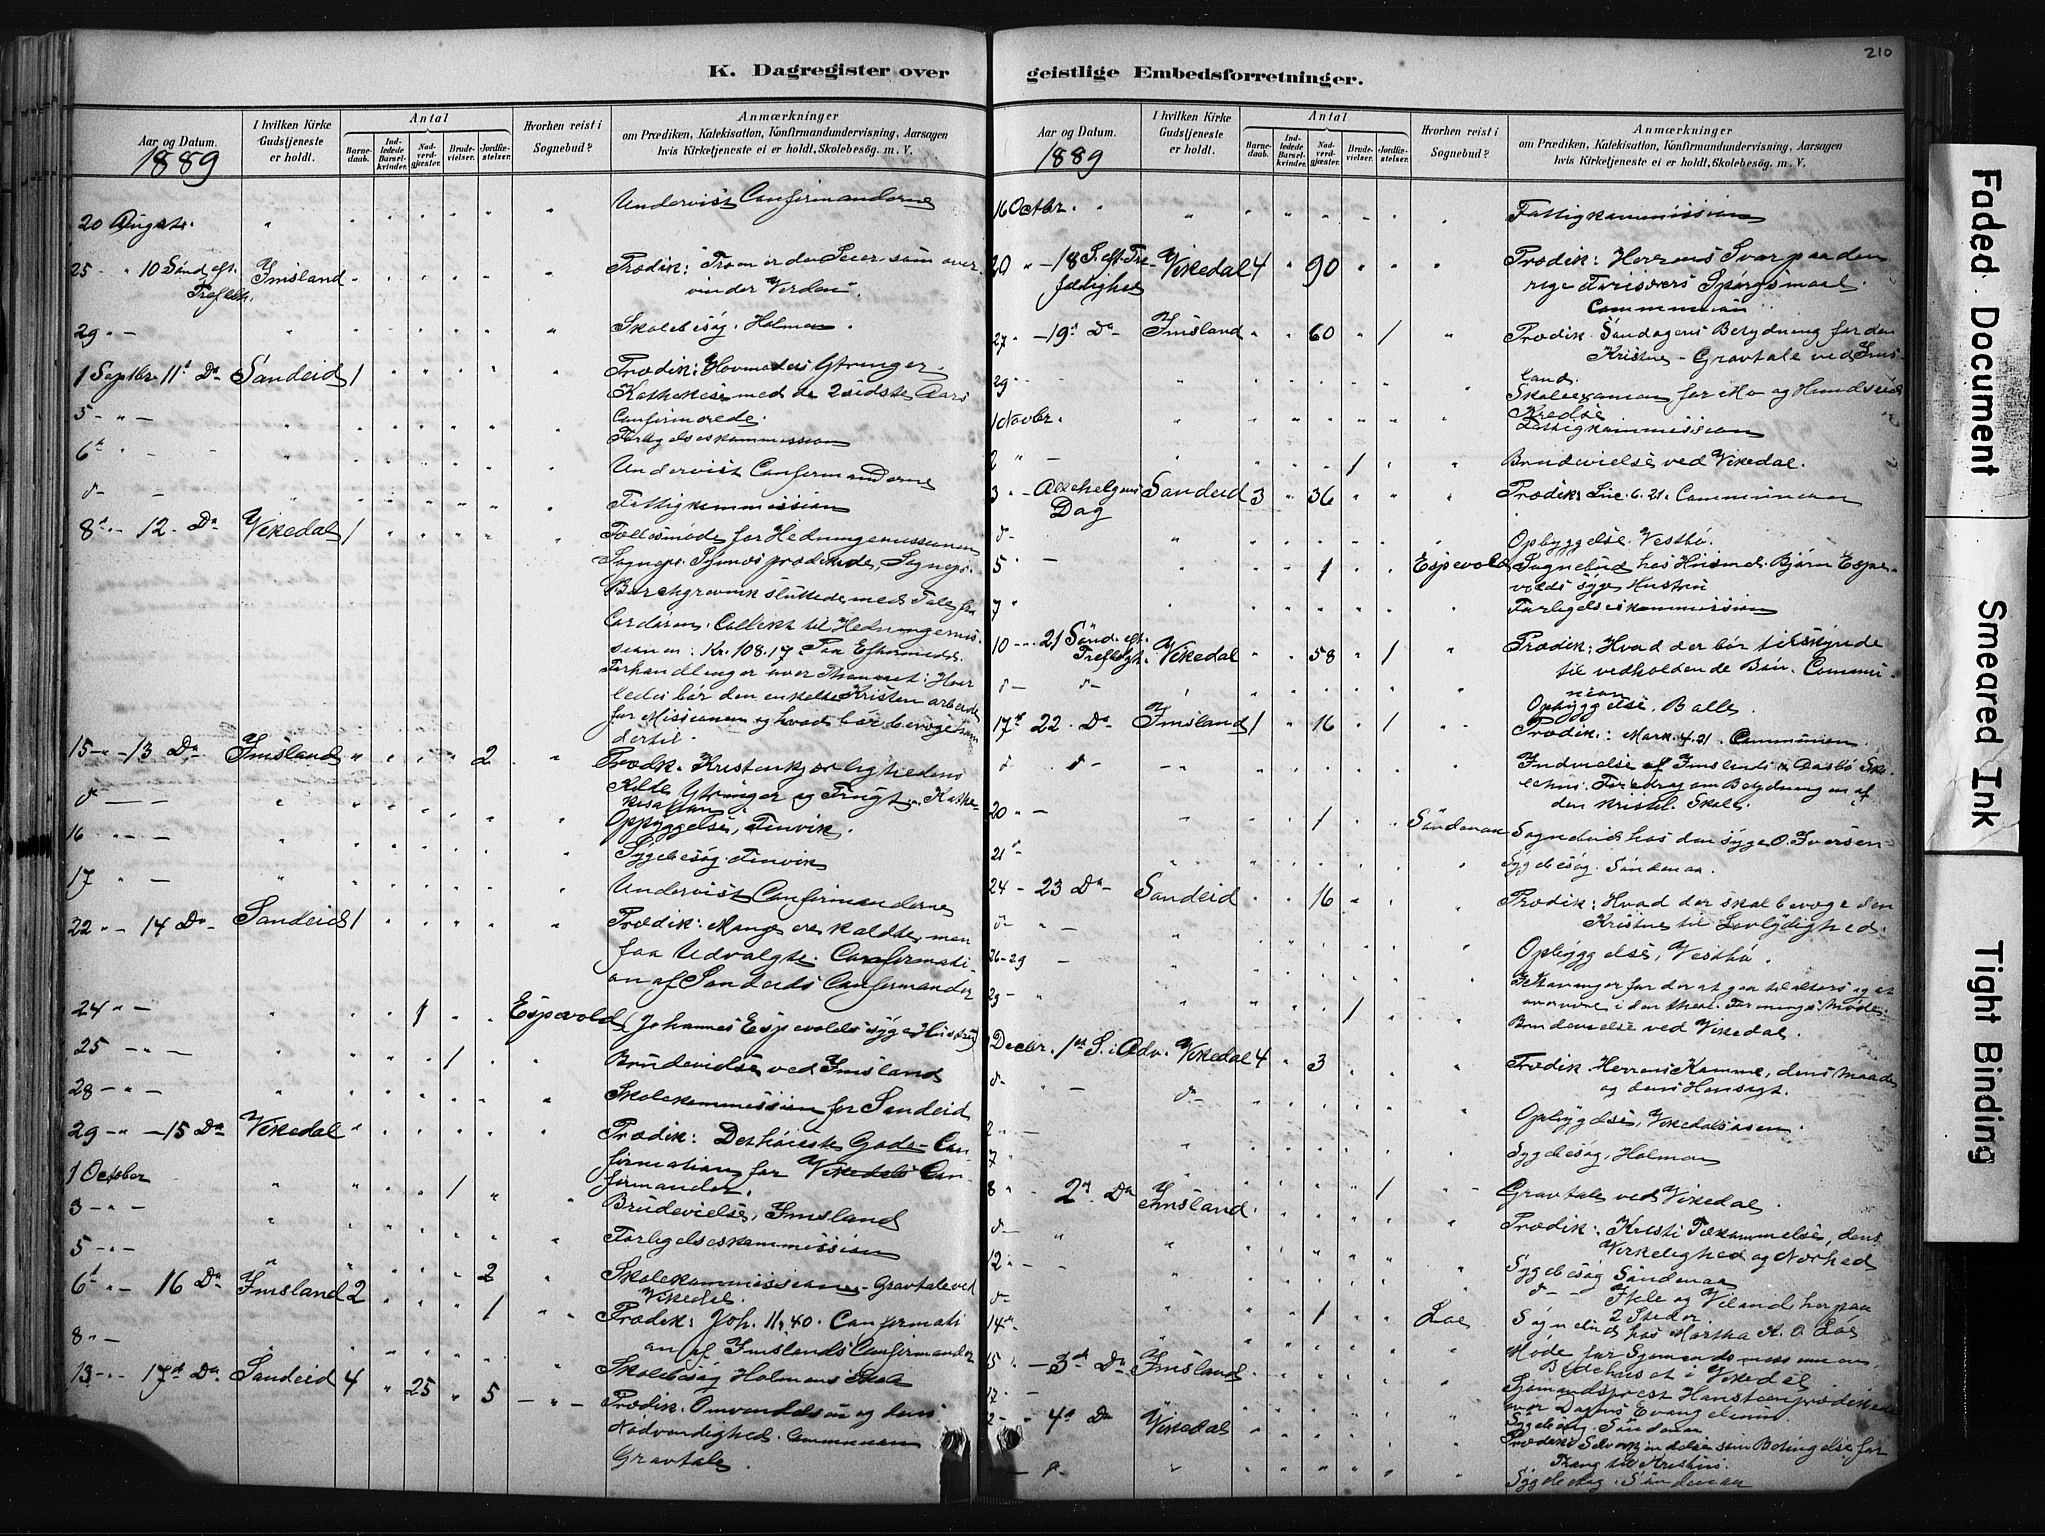 210
K. Dagregister over
Aar og Datum.
1889
I hvilken Kirke
Gudstjeneste
er holdt.
Antal
Barne-
daab.
Ind-
ledede
Barsel-
kvinder.
Nad-
verd-
gjæster.
Brude-
vielser.
Jordfæ-
stelser.
Hvorhen reist i
Sognebud?
Anmærkninger
om Prædiken, Katekisation, Konfirmandundervisning, Aarsagen
hvis Kirketjeneste ei er holdt, Skolebesøg. m. V.
20 August. Undervist Confirmanderne
25 " 10 Sønd. eft. Imsland Prædik: Troen er den Seier som over-
Trefoldh. vinder Verden.
29 " — Skolebesøg. Holmen.
1 Septbr 11te Do Sandeid 1 Prædik: Hovmodets Ytringer.
Kathekese med de 2 sidste Aars
5 - " — Confirmerede.
Forligelseskommission
6te " - Undervist Confirmanderne
d - Fattigkommission
8de " - 12 - Do Vikedal 1 Fællesmøde for Hedningemissionen
Sogneps. prædikede, Sogneps.
sluttede med Tale fra
Cordøren. Collekt til Hedningemis-
sionen: Kr. 108.17. Paa Eftermidd.
Forhandlinger over Themaet: Hvor-
ledes bør den enkelte Kristen arbeide
for Missionen og hvad bør bevæge ham
dertil.
15 - " - 13 Do Imsland 2 Prædk. Kristenkjærlighedens
Kilde, Ytringer og Frugt. Kathe-
kisation.
d — — Opbyggelse, Tinvik.
16 " - " — Sygebesøg. Tinvik
17 " — Undervist Confirmanderne
22 " - 14 Do Sandeid 1 Prædik: Mange ere kaldte, men
faa Udvalgte. Confirmati-
on af Sandeids Confirmander
24 " — 1 Espevold (Johannes Espevolds syge Hustru)
25 - " — 1 Brudevielse ved Imsland
28 - " — Skolekommission for Sandeid
29 - " - 15 Do Vikedal Prædik: Det høieste Gode - Con-
firmation for Vikedals Con-
firmander.
1 October 1 Brudevielse, Imsland
3 - " — Forligelseskommission
5 - " — 2 Skolekommission - Gravtale ved
Vikedal.
6te " - 16 Do Imsland 2 1 Prædik: Joh. 11, 40. Confirmati-
on af Imslands Confirmander
8 " — Skolebesøg Holmens Skole
13 - " - 17de Do Sandeid 4 25 5 Prædik. Omvendelsen og dens
Nødvendighed. Communion
Gravtale.
geistlige Embedsforretninger.
Aar og Datum.
1889
I hvilken Kirke
Gudstjeneste
er holdt.
Antal
Barne-
daab.
Ind-
ledede
Barsel-
kvinder.
Nad-
verd-
gjæster.
Brude-
vielser.
Jordfæ-
stelser.
Hvorhen reist i
Sognebud?
Anmærkninger
om Prædiken, Katekisation, Konfirmandundervisning, Aarsagen
hvis Kirketjeneste ei er holdt, Skolebesøg. m. V.
16 Octbr. Fattigkommission
20 " - 18 S. eft. Tre- Vikedal 4 90 Prædik: Herrens Svar paa den
foldighed Farisæers Spørgsmaal.
Communion
27 " - 19de Do Imsland 60 1 Prædik. Søndagens Betydning for den
Kristne - Gravtale ved Ims-
land.
29 Skoleexamen for Mo og Hundseid
Kredse
1 Novbr. Fattigkommission
2 " — 1 Brudevielse ved Vikedal.
3 " - Allehelgens Sandeid 3 36 Prædik: Luc. 6. 21. Communion
Dag
d - Opbyggelse. Vestbø.
5 — 1 Espevold Sognebud hos Husmd. Bjørn Espe-
volds syge Hustru
7 " Forligelseskommission
10 - - 21 Sønd. eft. Vikedal 58 1 Prædik: Hvad der bør tilskynde
Trefoldigh. til vedholdende Bøn. Commu-
nion
d - d - Opbyggelse. Balle.
17de 22 - Do Imsland 1 16 1 Prædik: Mark. 4. 21. Communion.
d d - Indvielse af Imslands Sko-
lehus. Foredrag om Betydningen af
den kristel. Skole
20 " — 1 Søndenaa Sognebud hos den syge O. Iversen
21 - Sygebesøg. Søndenaa.
24 - 23 Do Sandeid 16 Prædik: Hvad der skal bevæge den
Kristne til Lovlydighed.
d - Opbyggelse, Vestbø.
26-29 —
29 - 1 Brudevielse ved Vikedal.
Decbr. 1ste S. i Adv. Vikedal 4 3 Prædik. Herrens Komme, dens Maade
og dens Hensigt.
d - Opbyggelse, Vikedalsosen.
7 " Sygebesøg, Holmen
8 " - 2den Do Imsland 1 Gravtale ved Vikedal.
Prædik: Kristi Tilkommelse, dens
Virkelighed og Nærhed
12 " - Sygebesøg Søndenaa
d
14 " 1 Løe Sognebud hos Martha A. O. Løe
15 " - 3de Do Imsland Møde for Sjømandsmissionen,
Bedehuset i Vikedal
17 - Sjømandsprest Hansteen prædikede
over Dagens Evangelium
- 4de Do Vikedal Sygebesøg. Søndenaa
Prædik: Selverkjendelse som Betingelse for
Trang til Kristus.
Sygebesøg. Søndenaa
Faded Document
Smeared Ink
Tight Binding